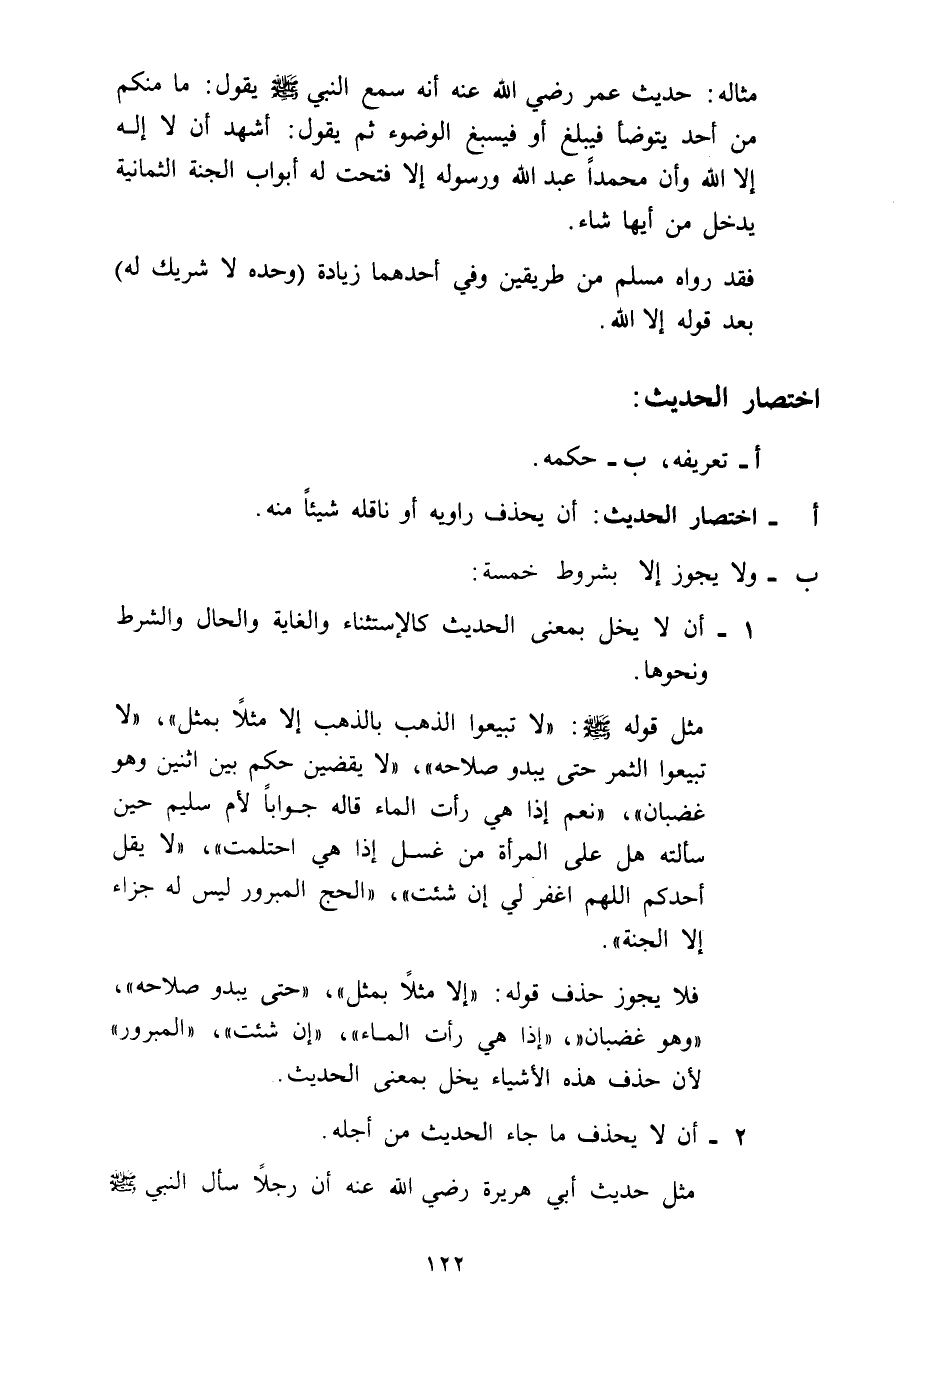 مثاله: حديث عمر رضي الله عنه أنه سمع النبي ﷺ يقول: ما منكم
من أحد يتوضأ فيبلغ أو فيسبغ الوضوء ثم يقول: أشهد أن لا إله
إلا الله وأن محمداً عبد الله ورسوله إلا فتحت له أبواب الجنة الثمانية
يدخل من أيها شاء.
فقد رواه مسلم من طريقين وفي أحدهما زيادة (وحده لا شريك له)
بعد قوله إلا الله.
اختصار الحديث:
أ ـ تعريفه، ب ـ حكمه.
أ ـ اختصار الحديث: أن يحذف راويه أو ناقله شيئاً منه.
ب ـ ولا يجوز إلا بشروط خمسة:
١ ـ أن لا يخل بمعنى الحديث كالإستثناء والغاية والحال والشرط
ونحوها.
مثل قوله ﷺ: «لا تبيعوا الذهب بالذهب إلا مثلاً بمثل»، «لا
تبيعوا الثمر حتى يبدو صلاحه»، «لا يقضين حكم بين اثنين وهو
غضبان»، «نعم إذا هي رأت الماء قاله جواباً لأم سليم حين
سألته هل على المرأة من غسل إذا هي احتلمت»، «لا يقل
أحدكم اللهم اغفر لي إن شئت»، «الحج المبرور ليس له جزاء
إلا الجنة».
فلا يجوز حذف قوله: «إلا مثلاً بمثل»، «حتى يبدو صلاحه»،
«وهو غضبان«، «إذا هي رأت الماء»، «إن شئت»، «المبرور»
لأن حذف هذه الأشياء يخل بمعنى الحديث.
٢ ـ أن لا يحذف ما جاء الحديث من أجله.
مثل حديث أبي هريرة رضي الله عنه أن رجلاً سأل النبي ﷺ
١٢٢